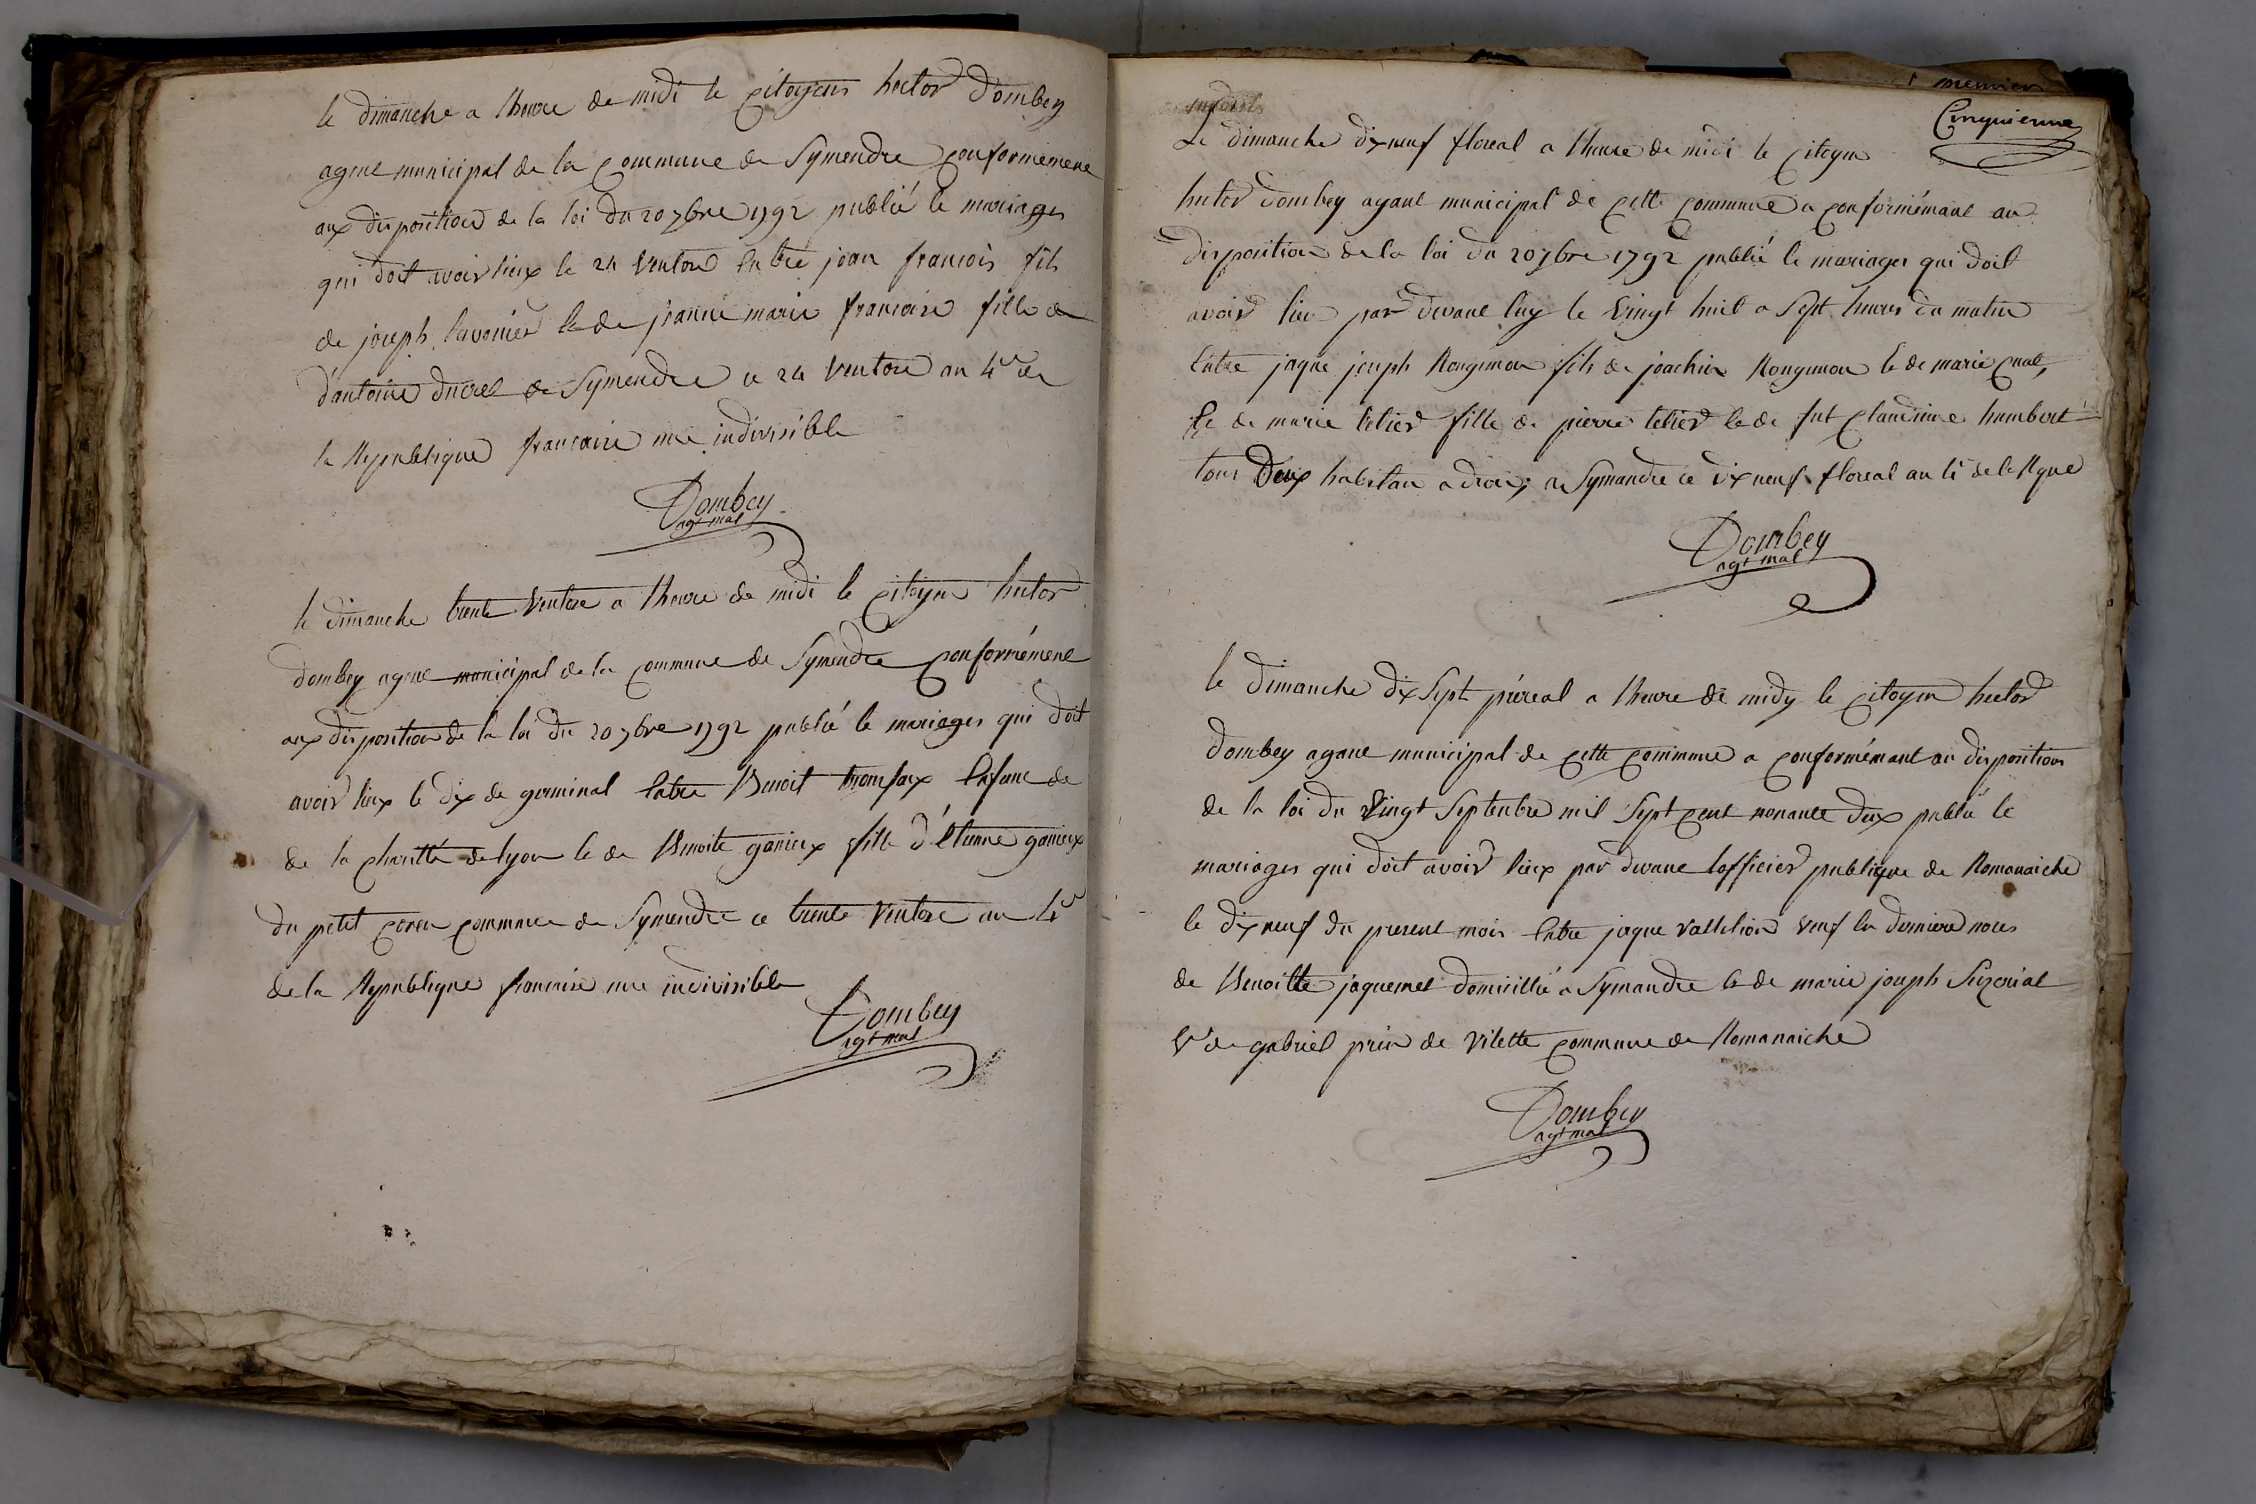 le dimanche a lheure de midi le citoyens hector dombey
agent municipal de la commune de Symendre conformement
aux disposition de la loi du 20 7bre 1792 publié le mariages
qui doit avoir lieux le 24 ventose entre jean francois fils
de joseph et de jeanne marie francoise fille de
d'antoine de Symendre ce 24 ventose an 4e de
la Republique francaise une indivisible
Dombey
agt mal
le dimanche trente ventose a lheure de midi le citoyen hector
dombey agent municipal de la commune de Symendre conformément
aux disposition de la loi du 20 7bre 1792 publié le mariages qui doit
avoir lieux le dix de germinal entre Benoit enfant de
de la charitté de lyon et de Benoite ganieux fille d'étienne ganieux
du petit commune de Symendre ce trente ventose an 4e
de la Republique francaise une indivisible
Dombey
agt mal
Cinquieme
Le dimanche dixneuf floreal a lheure de midi le citoyen
hector dombey agant municipal de cette commune a conformémant au
disposition de la loi du 20 7bre 1792 publié le mariages qui doit
avoir lieu par devant luy le vingt huit a sept heures du matin
entre jaque joseph Rongemon fils de joachin Rongemon et de marie
et de marie tetier fille de pierre tetier et de fut claudine humbert
tous deux habitan a Symandre ce dixneuf floreal an 4e de la Rque
Dombey
agt mal
le dimanche dix sept préreal a lheure de midy le citoyen hector
dombey agant municipal de cette commune a conformémant au disposition
de la loi du vingt Septenbre mil Sept cent nonante deux publié le
mariages qui doit avoir lieux par devant lofficier publique de Romanaiche
le dixneuf du present mois entre jaque vallelion veuf en derniere noces
de Benoitte jaquemet domicillié a Symandre et de marie joseph
Ve de gabriel prin de vilette commune de Romanaiche
Dombey
agt mal